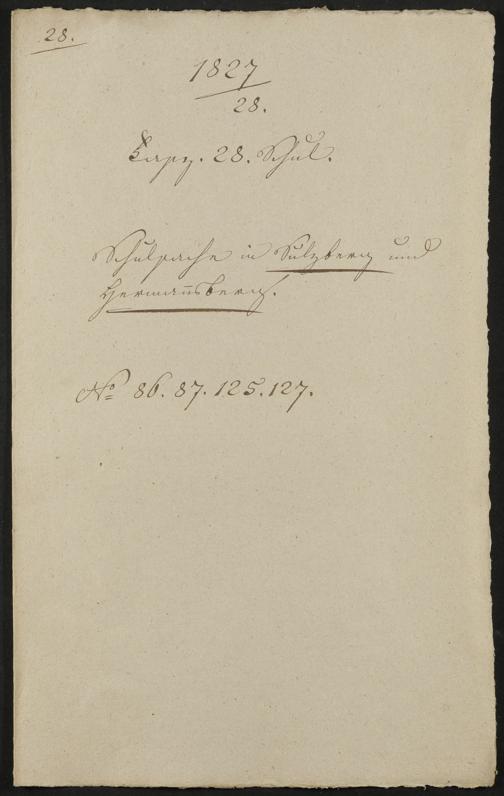 28.
1827
28.
Faszz. 28. Schul.
Schulsache in Sulzberg und
Hermannsberg.
No 86. 87. 125. 127.